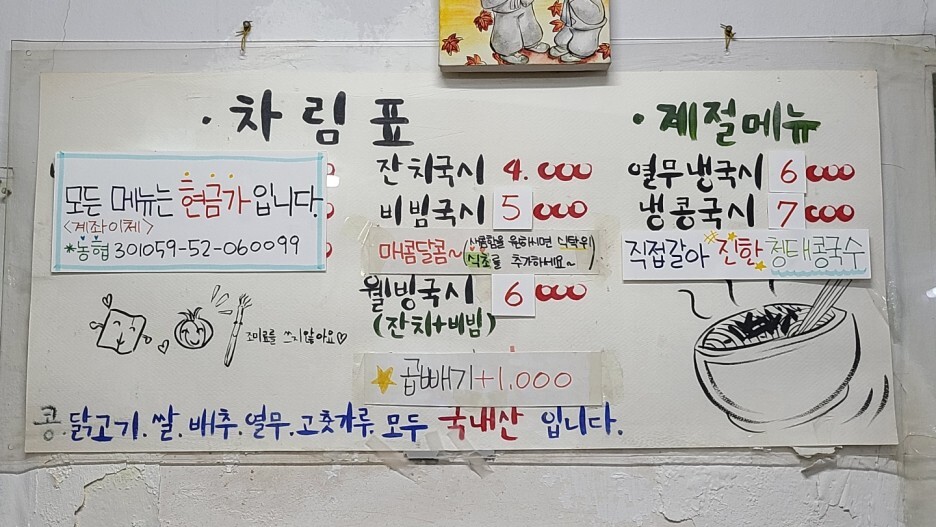 · 차림표
모든 메뉴는 현금가 입니다.
<계좌이체>
*농협 301059-52-060099
조미료를 쓰지않아요♡
잔치국시 4.000
비빔국시 5 000
매콤달콤~ (새콤함을 원하시면 식탁위
식초를 추가하세요~)
웰빙국시 6 000
(잔치+비빔)
곱빼기+1.000
· 계절메뉴
열무냉국시 6 000
냉콩국시 7 000
직접갈아 진한 청태콩국수
콩.닭고기.쌀.배추.열무.고춧가루.모두 국내산 입니다.